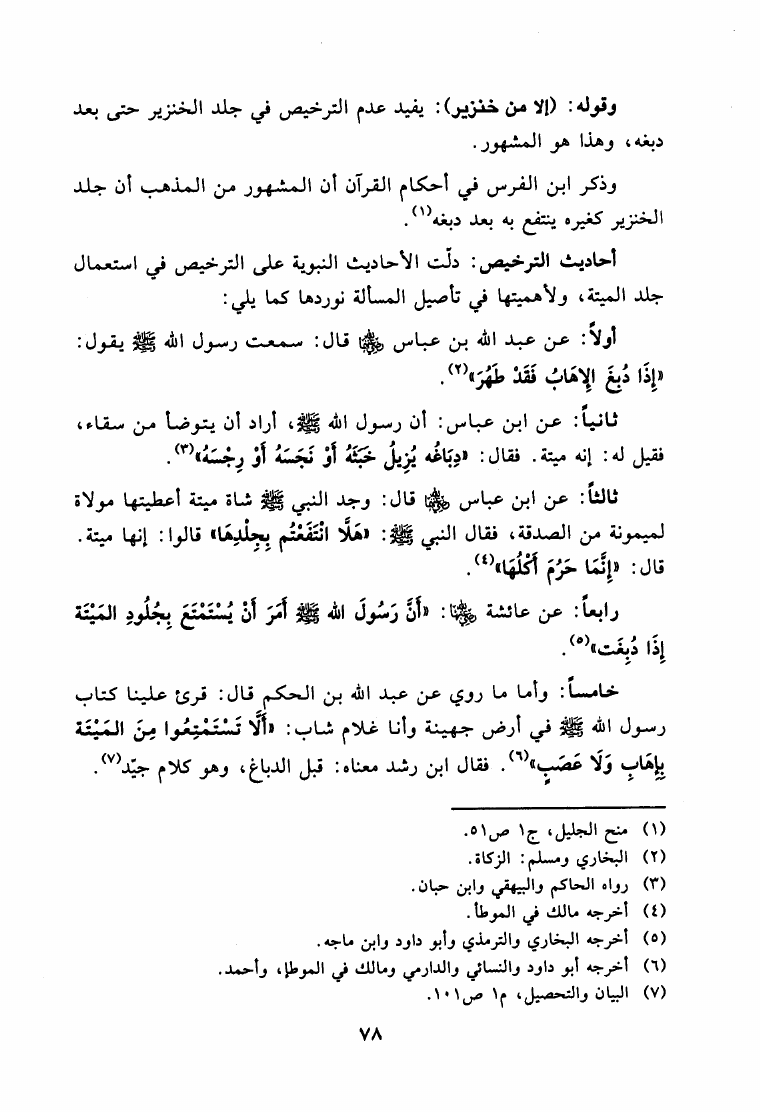 وقوله: (إلا من خنزير): يفيد عدم الترخيص في جلد الخنزير حتى بعد
دبغه، وهذا هو المشهور.
وذكر ابن الفرس في أحكام القرآن أن المشهور من المذهب أن جلد
الخنزير كغيره ينتفع به بعد دبغه(١).
أحاديث الترخيص: دلّت الأحاديث النبوية على الترخيص في استعمال
جلد الميتة، ولأهميتها في تأصيل المسألة نوردها كما يلي:
أولاً: عن عبد الله بن عباس ﵄ قال: سمعت رسول الله ﷺ يقول:
«إِذَا دُبِغَ الإِهَابُ فَقَدْ طَهُرَ»(٢).
ثانياً: عن ابن عباس: أن رسول الله ﷺ، أراد أن يتوضأ من سقاء،
فقيل له: إنه ميتة. فقال: «دِبَاغُه يُزِيلُ خَبَثَهُ أَوْ نَجَسَهُ أَوْ رِجْسَهُ»(٣).
ثالثاً: عن ابن عباس ﵄ قال: وجد النبي ﷺ شاة ميتة أعطيتها مولاة
لميمونة من الصدقة، فقال النبي ﷺ: «هَلَّا انْتَفَعْتُم بِجِلْدِهَا» قالوا: إنها ميتة.
قال: «إِنَّمَا حَرُمَ أَكْلُهَا»(٤).
رابعاً: عن عائشة ﵂: «أَنَّ رَسُولَ الله ﷺ أَمَرَ أَنْ يُسْتَمْتَعَ بِجُلُودِ المَيْتَة
إِذَا دُبِغَت»(٥).
خامساً: وأما ما روي عن عبد الله بن الحكم قال: قرئ علينا كتاب
رسول الله ﷺ في أرض جهينة وأنا غلام شاب: «أَلَّا تَسْتَمْتِعُوا مِنَ المَيْتَة
بِإِهَابٍ وَلَا عَصَبٍ»(٦). فقال ابن رشد معناه: قبل الدباغ، وهو كلام جيّد(٧).
(١) منح الجليل، ج١ ص٥١.
(٢) البخاري ومسلم: الزكاة.
(٣) رواه الحاكم والبيهقي وابن حبان.
(٤) أخرجه مالك في الموطأ.
(٥) أخرجه البخاري والترمذي وأبو داود وابن ماجه.
(٦) أخرجه أبو داود والنسائي والدارمي ومالك في الموطإ، وأحمد.
(٧) البيان والتحصيل، م١ ص١٠١.
٧٨